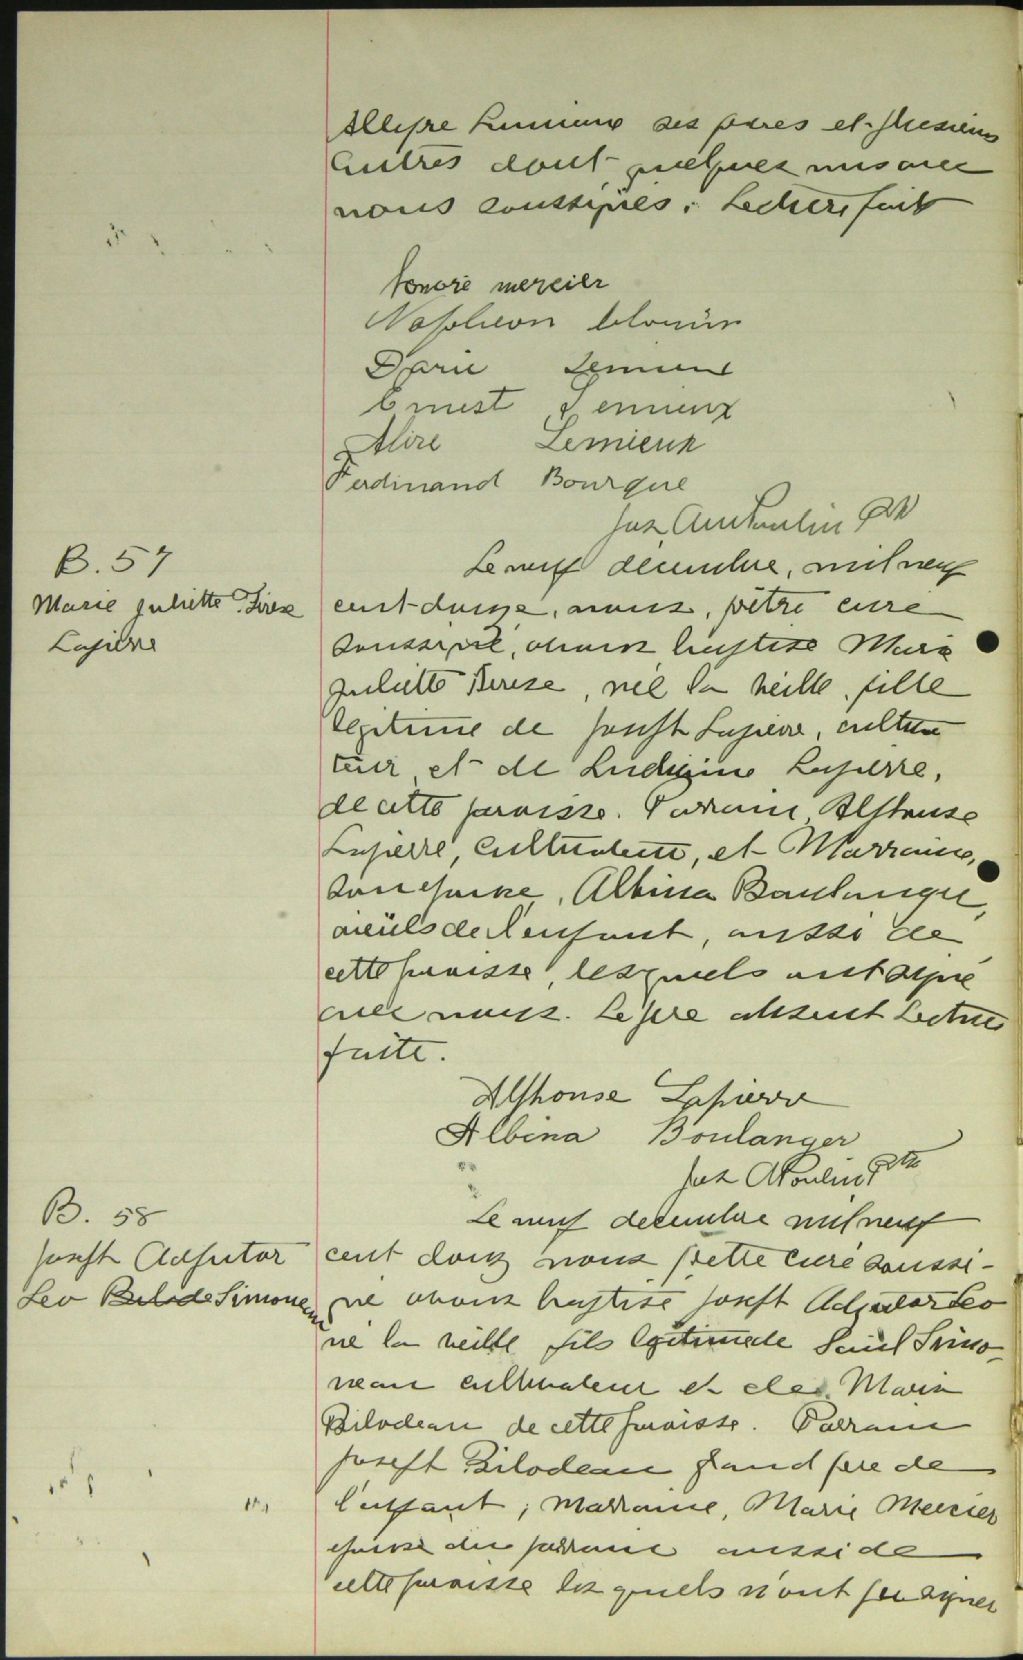 Allyre Lemieux ses freres et plusieurs
autres dont quelques uns avec
nous soussignés. Lecture fait
Honoré mercier
Napoleon blouin
Darie Lemieux
Ernest Lemieux
Alire Lemieux
Ferdinand Bourque
Jos Am Poulin Ptr
B. 57
Marie Juliette Terese
Lapierre
Le neuf décembre, mil neuf
cent-douze, nous, prêtre curé
soussigné, avons baptisé Marie
Juliette Terese, née la veille, fille
legitime de Joseph Lapierre, cultiva
teur, et de Ludivine Lapierre,
de cette paroisse. Parrain, Alphonse
Lapierre, cultivateur, et Marraine,
son épouse, Albina Boulanger,
aieüls de l'enfant, aussi de
cette paroisse, lesquels ont signé
avec nous. Le père absent Lecture
faite.
Alphonse Lapierre
Albina Boulanger
Jos A Poulin Ptr
B. 58
Joseph Adjutor
Leo Bilode Simoneau
Le neuf decembre mil neuf
cent douz nous prette curé soussi-
né avons baptisé Joseph Adjutor Leo
né la veille fils legitime de Saül Simo-
neau cultivateur et de Maria
Bilodeau de cette paroisse. Parrain
Joseph Bilodeau grand pere de
l'enfant; marraine, Marie Mercier
epouse du parrain aussi de
cette paroisse les quels n'ont pu signer